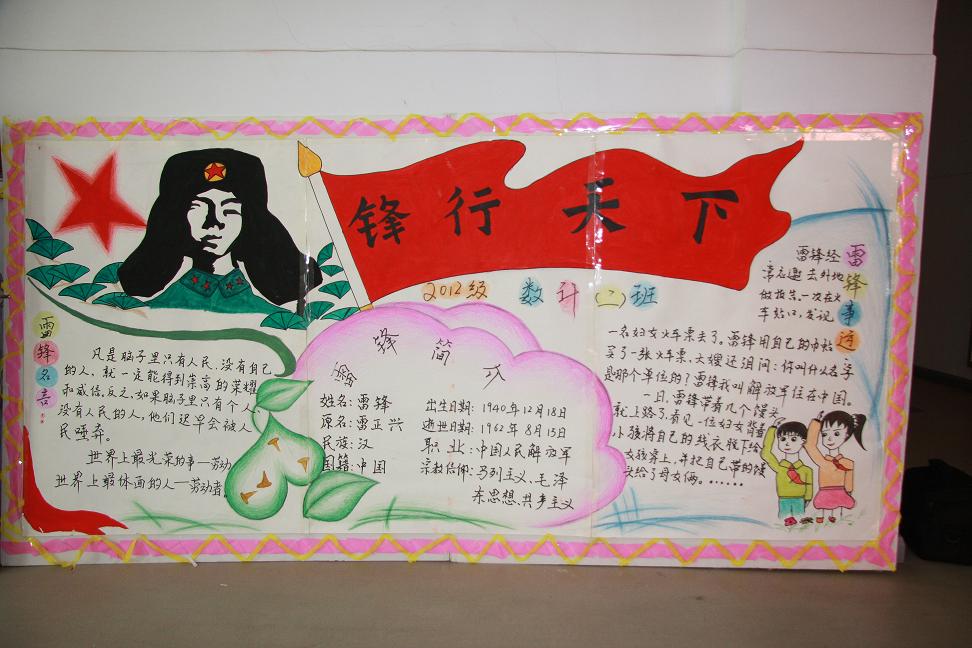 锋行天下
2012级 数计(二)班
雷锋名言
凡是脑子里只有人民、没有自己
的人,就一定能得到崇高的荣耀
和威信。反之,如果脑子里只有个人
没有人民的人,他们迟早会被人
民唾弃。
世界上最光荣的事—劳动
世界上最体面的人—劳动者。
雷锋简介
姓名:雷锋
原名:雷正兴
民族:汉
国籍:中国
出生日期:1940年12月18日
逝世日期:1962年8月15日
职业:中国人民解放军
宗教信仰:马列主义、毛泽
东思想、共产主义
雷锋事迹
雷锋经
常应邀去外地
做报告,一次在火
车站口,发现
一名妇女火车票丢了。雷锋用自己的
买了一张火车票,大嫂还追问:你叫什么名字
是那个单位的?雷锋我叫解放军住在中国。
一日,雷锋带着几个馒头
就上路了,看见一位妇女背着
小孩将自己的线衣脱下给
女孩穿上,并把自己带的馒
头给了母女俩。……